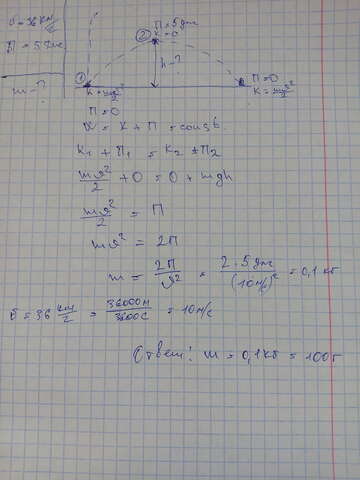 v = 36 км/ч
П = 5 Дж
m - ?
② П = 5 Дж
К = 0
h - ?
①
К = mv²/2
П = 0
П = 0
К = mv²/2
= К + П = const
К₁ + П₁ = К₂ + П₂
mv²/2 + 0 = 0 + mgh
mv²/2 = П
mv² = 2П
m = 2П/v² = 2·5 Дж/(10 м/с)² = 0,1 кг
v = 36 км/ч = 36000 м/3600 с = 10 м/с
Ответ: m = 0,1 кг = 100 г